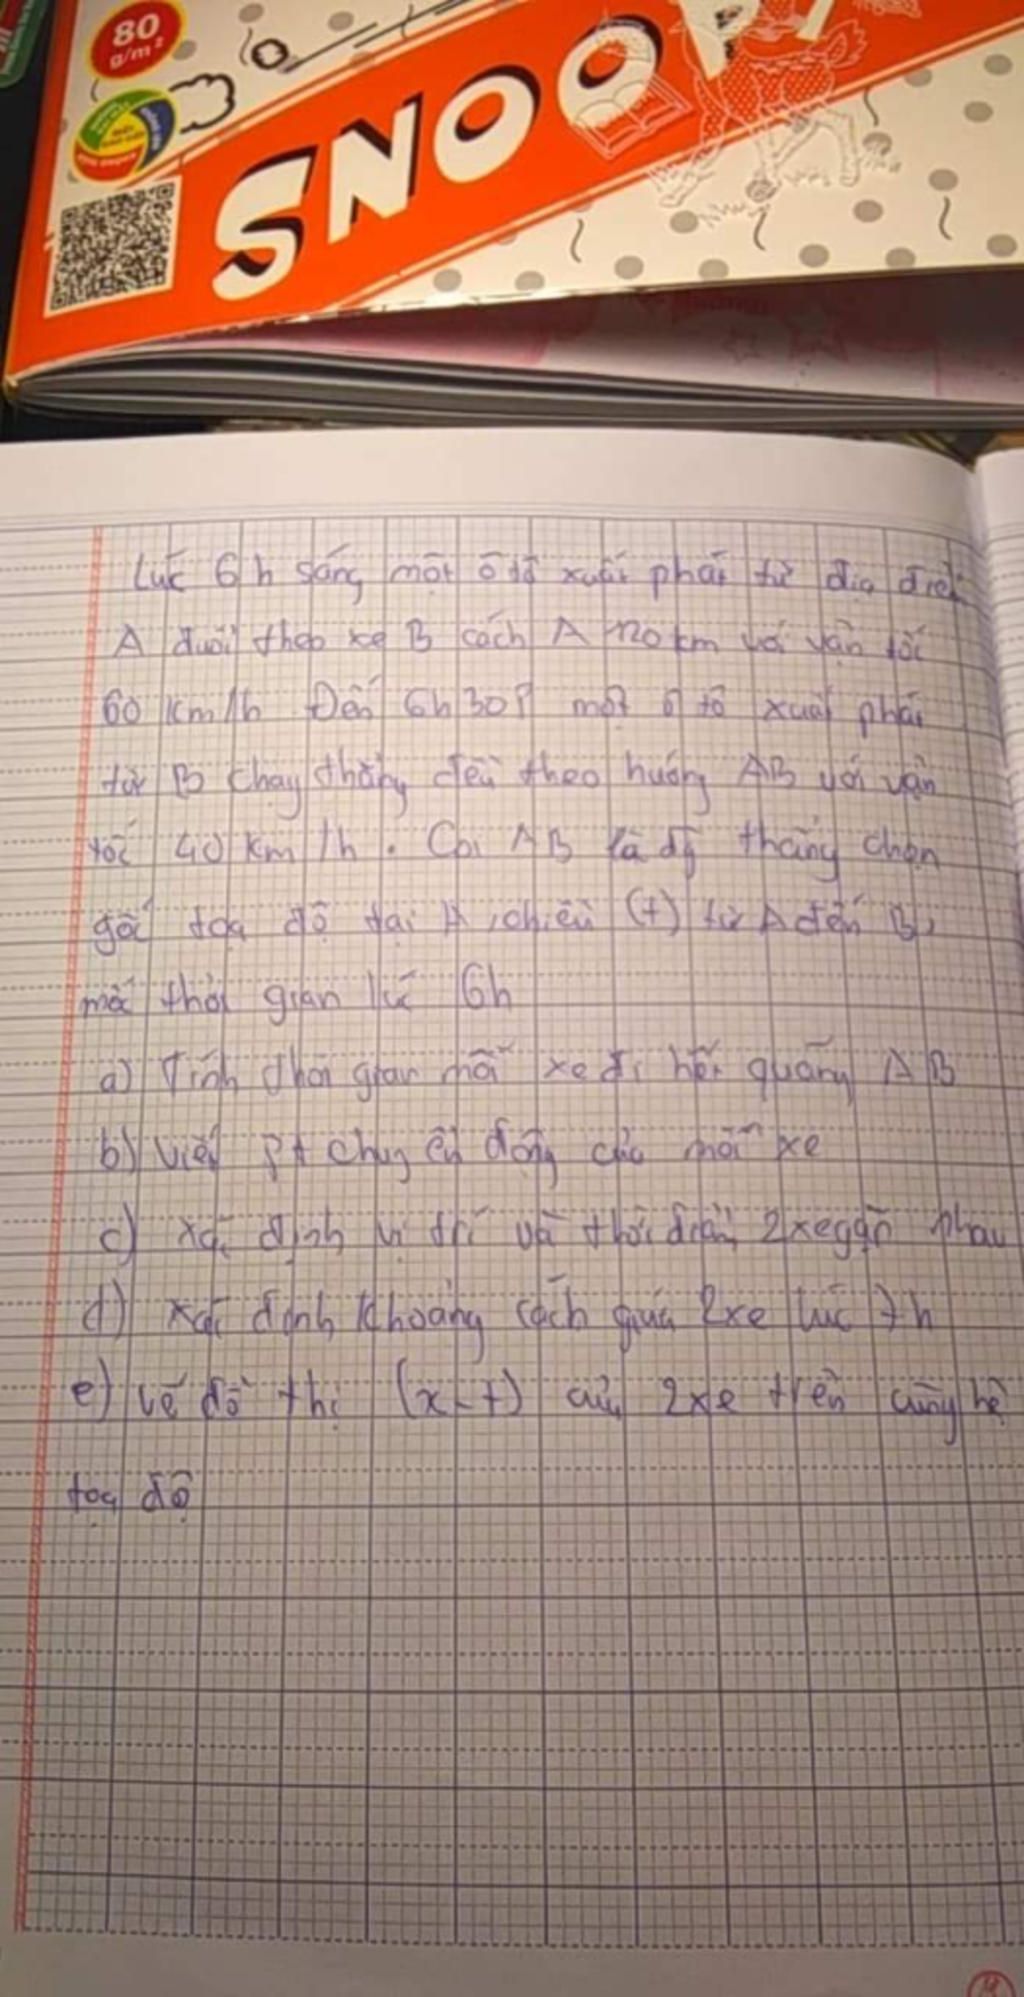 80
g/m²
SNOOPY
Lúc 6h sáng một ô tô xuất phát từ địa điểm
A đuổi theo xe B cách A 120 km với vận tốc
60 km/h Đến 6h30P một ô tô xuất phát
từ B chạy thẳng đều theo hướng AB với vận
tốc 40 km/h. Coi AB là đg thẳng chọn
gốc tọa độ tại A, chiều (+) từ A đến B,
mốc thời gian lúc 6h
a) Tính thời gian mỗi xe đi hết quãng AB
b) Viết Pt chuyển động của mỗi xe
c) xác định vị trí và thời điểm 2 xe gặp nhau
d) xác định khoảng cách giữa 2 xe lúc 7h
e) vẽ đồ thị (x-t) của 2 xe trên cùng hệ
tọa độ